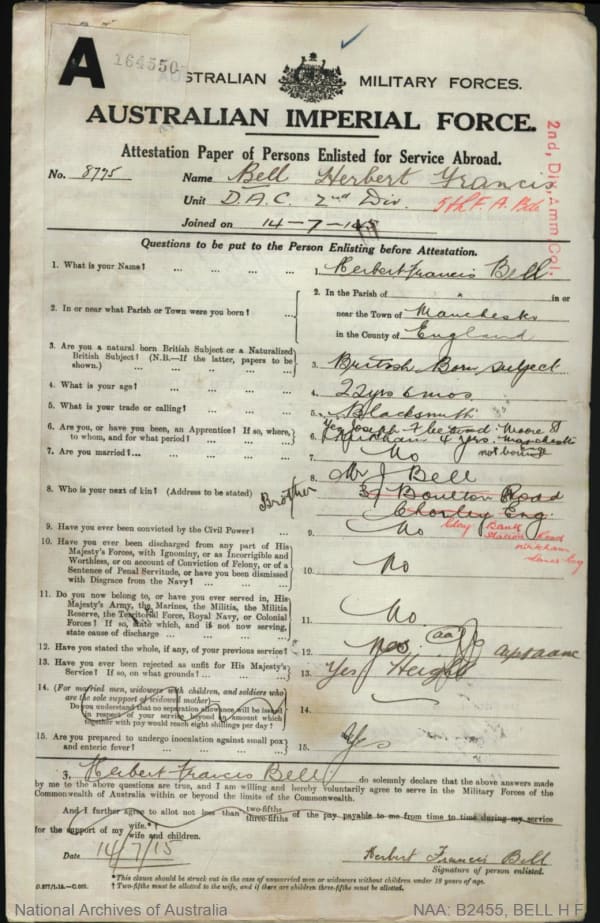 A
164550
AUSTRALIAN MILITARY FORCES.
AUSTRALIAN IMPERIAL FORCE.
Attestation Paper of Persons Enlisted for Service Abroad.
No. 8775 Name Bell Herbert Francis
Unit D.A.C. 2nd Div. 5th F. A. Bde
Joined on 14-7-15
2nd, Div, Amm Col.
Questions to be put to the Person Enlisting before Attestation.
1. What is your Name? ... ... ... ... 1. Herbert Francis Bell
2. In or near what Parish or Town were you born? ... 2. In the Parish of in or
near the Town of Manchester
in the County of England
3. Are you a natural born British Subject or a Naturalized
British Subject? (N.B.—If the latter, papers to be
shown.) ... ... ... ... ... 3. British Born subject
4. What is your age? ... ... ... ... 4. 22yrs 6mos
5. What is your trade or calling? ... ... ... 5. Blacksmith
6. Are you, or have you been, an Apprentice? If so, where,
to whom, and for what period? ... ... ... 6. Yes Joseph 4 yrs. Manchester
not bound
7. Are you married?... ... ... ... ... 7. No
8. Who is your next of kin? (Address to be stated) Brother 8. Mr J Bell
3 Boulton Road
Chorley Eng.
Bank
Station Road
Kirkham
9. Have you ever been convicted by the Civil Power? ... 9. No
10. Have you ever been discharged from any part of His
Majesty's Forces, with Ignominy, or as Incorrigible and
Worthless, or on account of Conviction of Felony, or of a
Sentence of Penal Servitude, or have you been dismissed
with Disgrace from the Navy? ... ... ... 10. No
11. Do you now belong to, or have you ever served in, His
Majesty's Army, the Marines, the Militia, the Militia
Reserve, the Territorial Force, Royal Navy, or Colonial
Forces? If so, state which, and if not now serving,
state cause of discharge ... ... ... ... 11. No
12. Have you stated the whole, if any, of your previous service? 12.
13. Have you ever been rejected as unfit for His Majesty's
Service? If so, on what grounds? ... ... ... 13. Yes Height
14. (For married men, widowers with children, and soldiers who
are the sole support of widowed mother)—
Do you understand that no separation allowance will be issued
in respect of your service beyond an amount which
together with pay would reach eight shillings per day? 14.
15. Are you prepared to undergo inoculation against small pox
and enteric fever? ... ... ... ... 15. Yes
I, Herbert Francis Bell do solemnly declare that the above answers made
by me to the above questions are true, and I am willing and hereby voluntarily agree to serve in the Military Forces of the
Commonwealth of Australia within or beyond the limits of the Commonwealth.
And I further agree to allot not less than two-fifths three-fifths of the pay payable to me from time to time during my service
for the support of my wife.*† wife and children.
Date 14/7/15 Herbert Francis Bell
Signature of person enlisted.
*This clause should be struck out in the case of unmarried men or widowers without children under 18 years of age.
† Two-fifths must be allotted to the wife, and if there are children three-fifths must be allotted.
National Archives of Australia NAA: B2455, BELL H F